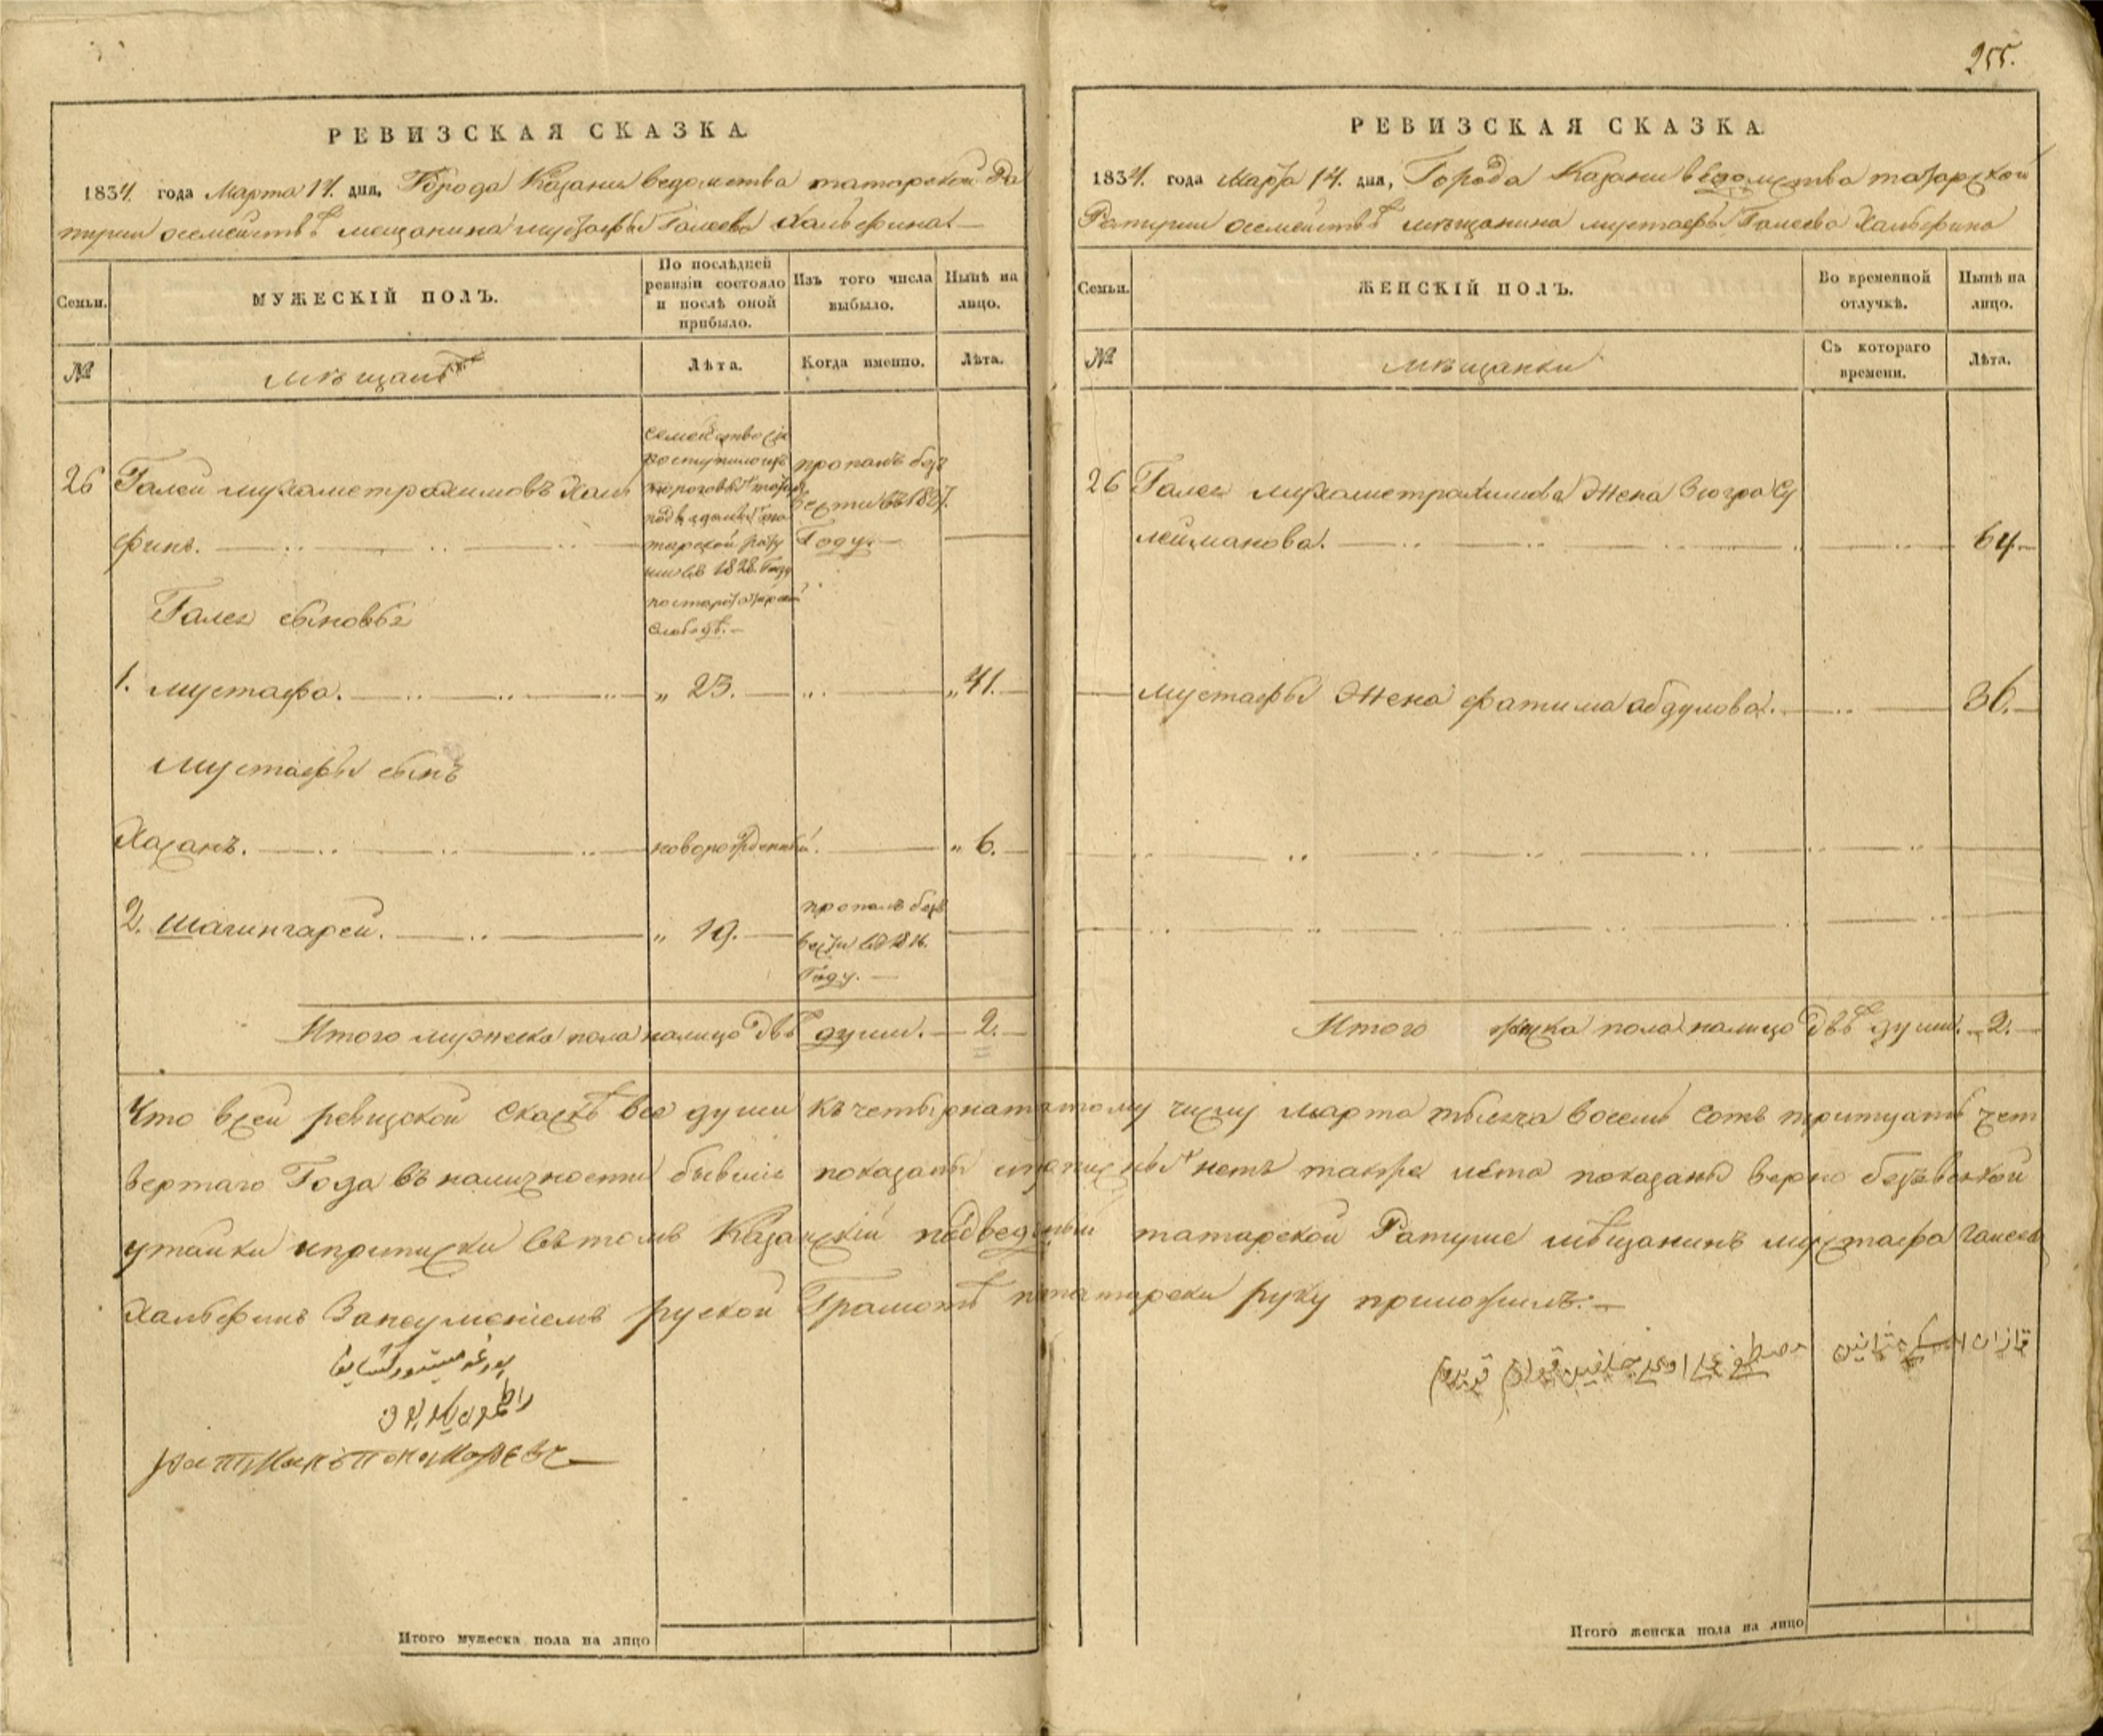 255.
РЕВИЗСКАЯ СКАЗКА.
1834. года Марта 14. дня, Города Казани ведомства татарской Ра
туши осемействѣ мещанина мустафы Галеева Хальфина
Семьи.
МУЖЕСКІЙ ПОЛЪ.
По послѣдней
ревизіи состояло
и послѣ оной
прибыло.
Изъ того числа
выбыло.
Нынѣ на
лицо.
№
мѣщане
Лѣта.
Когда именно.
Лѣта.
семейство сіе
поступило изъ
татарской рату
ши въ 1828. Году
постарой татарской
слободѣ.
26 Галей мухаметрахимовъ Халь
финъ.
пропалъ безъ
вести въ 1827.
Году.
Галея сыновья
1. мустафа. „ 23. „ 41.
мустафы сынъ
Хасанъ. новорожденный. „ 6.
2. Шагингарей. „ 19.
пропалъ безъ
вести въ 1816.
Году.
Итого мужеска пола налицо двѣ души. 2.
РЕВИЗСКАЯ СКАЗКА.
1834. года Марта 14. дня, Города Казани ведомства татарской
Ратуши осемействѣ мѣщанина мустафы Галеева Хальфина
Семьи.
ЖЕНСКІЙ ПОЛЪ.
Во временной
отлучкѣ.
Нынѣ на
лицо.
№
мѣщанки
Съ котораго
времени.
Лѣта.
26 Галея мухаметрахимова Жена Зюгра Су
лейманова. 64.
мустафы Жена фатима абдулова. 36.
Итого женска пола налицо двѣ души. 2.
Что всей ревизской Сказкѣ все души къ четырнатцатому числу марта тысяча восемь сотъ тритцать чет
вертаго Года въ наличности бывшіе показаны и прописныхъ нетъ также лѣта показаны верно безъвсякой
утайки иприписки вътомъ Казанскій подведомый татарской Ратуше мѣщанинъ мустафа Галеевъ
Хальфинъ Занеуменіемъ руской Грамотѣ потатарски руку приложилъ.
Итого мужеска пола на лицо
Итого женска пола на лицо